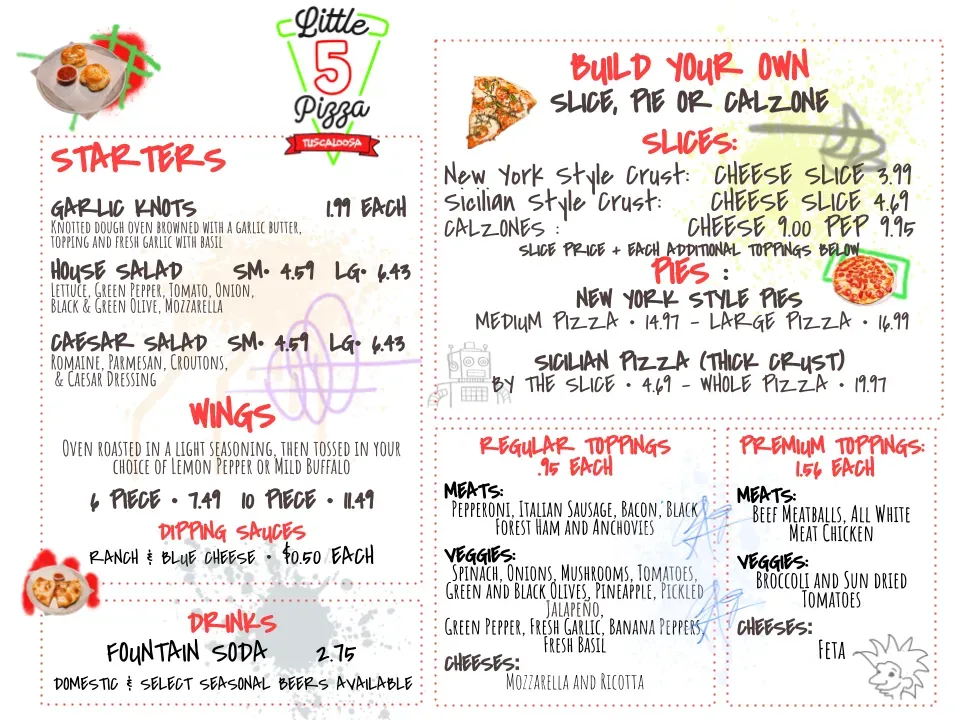 Little
5
Pizza
TUSCALOOSA
STARTERS
GARLIC KNOTS 1.99 EACH
Knotted dough oven browned with a garlic butter,
topping and fresh garlic with basil
HOUSE SALAD SM• 4.59 LG• 6.43
Lettuce, Green Pepper, Tomato, Onion,
Black & Green Olive, Mozzarella
CAESAR SALAD SM• 4.59 LG• 6.43
Romaine, Parmesan, Croutons,
& Caesar Dressing
WINGS
Oven roasted in a light seasoning, then tossed in your
choice of Lemon Pepper or Mild Buffalo
6 PIECE • 7.49 10 PIECE • 11.49
DIPPING SAUCES
RANCH & BLUE CHEESE • $0.50 EACH
DRINKS
FOUNTAIN SODA 2.75
DOMESTIC & SELECT SEASONAL BEERS AVAILABLE
BUILD YOUR OWN
SLICE, PIE OR CALZONE
SLICES:
New York Style Crust: CHEESE SLICE 3.99
Sicilian Style Crust: CHEESE SLICE 4.69
CALZONES : CHEESE 9.00 PEP 9.95
SLICE PRICE + EACH ADDITIONAL TOPPINGS BELOW
PIES :
NEW YORK STYLE PIES
MEDIUM PIZZA • 14.97 - LARGE PIZZA • 16.99
SICILIAN PIZZA (THICK CRUST)
BY THE SLICE • 4.69 - WHOLE PIZZA • 19.97
REGULAR TOPPINGS
.95 EACH
MEATS:
Pepperoni, Italian Sausage, Bacon, Black
Forest Ham and Anchovies
VEGGIES:
Spinach, Onions, Mushrooms, Tomatoes,
Green and Black Olives, Pineapple, Pickled
Jalapeño,
Green Pepper, Fresh Garlic, Banana Peppers,
Fresh Basil
CHEESES:
Mozzarella and Ricotta
PREMIUM TOPPINGS:
1.56 EACH
MEATS:
Beef Meatballs, All White
Meat Chicken
VEGGIES:
Broccoli and Sun dried
Tomatoes
CHEESES:
Feta